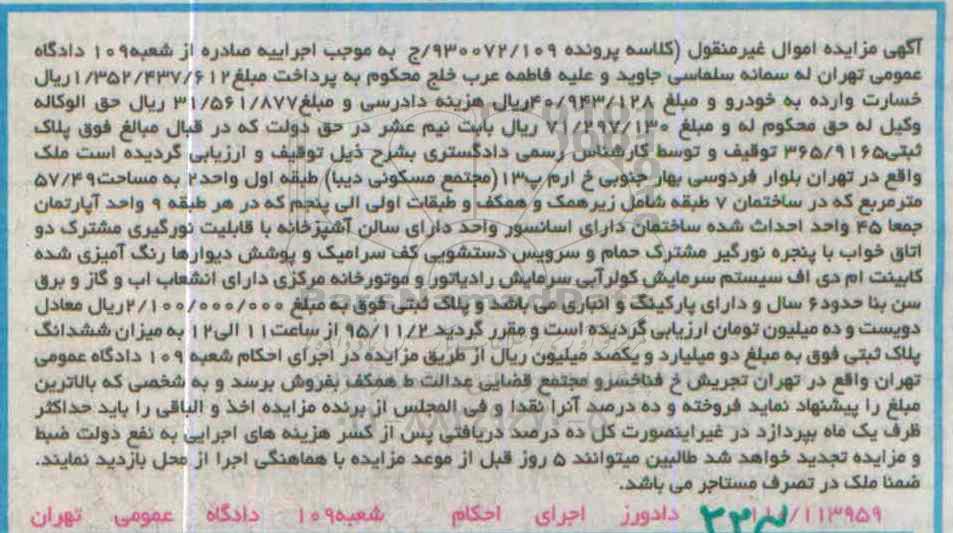 آگهی مزایده اموال غیرمنقول (کلاسه پرونده ۹۳۰۰۷۲/۱۰۹/ج به موجب اجراییه صادره از شعبه۱۰۹ دادگاه
عمومی تهران له سمانه سلماسی جاوید و علیه فاطمه عرب خلج محکوم به پرداخت مبلغ۱/۳۵۲/۴۳۷/۶۱۲ریال
خسارت وارده به خودرو و مبلغ ۴۰/۹۴۳/۱۲۸ریال هزینه دادرسی و مبلغ۳۱/۵۶۱/۸۷۷ ریال حق الوکاله
وکیل له حق محکوم له و مبلغ ۷۱/۱۹۷/۱۳۰ ریال بابت نیم عشر در حق دولت که در قبال مبالغ فوق پلاک
ثبتی۳۶۵/۹۱۶۵ توقیف و توسط کارشناس رسمی دادگستری بشرح ذیل توقیف و ارزیابی گردیده است ملک
واقع در تهران بلوار فردوسی بهار جنوبی خ ارم پ۱۳(مجتمع مسکونی دیبا) طبقه اول واحد۲ به مساحت۵۷/۴۹
مترمربع که در ساختمان ۷ طبقه شامل زیرهمک و همکف و طبقات اولی الی پنجم که در هر طبقه ۹ واحد آپارتمان
جمعا ۴۵ واحد احداث شده ساختمان دارای اسانسور واحد دارای سالن آشپزخانه با قابلیت نورگیری مشترک دو
اتاق خواب با پنجره نورگیر مشترک حمام و سرویس دستشویی کف سرامیک و پوشش دیوارها رنگ آمیزی شده
کابینت ام دی اف سیستم سرمایش کولرآبی سرمایش رادیاتور و موتورخانه مرکزی دارای انشعاب اب و گاز و برق
سن بنا حدود۶ سال و دارای پارکینگ و انباری می باشد و پلاک ثبتی فوق به مبلغ ۲/۱۰۰/۰۰۰/۰۰۰ریال معادل
دویست و ده میلیون تومان ارزیابی گردیده است و مقرر گردید ۹۵/۱۱/۲ از ساعت۱۱ الی۱۲ به میزان ششدانگ
پلاک ثبتی فوق به مبلغ دو میلیارد و یکصد میلیون ریال از طریق مزایده در اجرای احکام شعبه ۱۰۹ دادگاه عمومی
تهران واقع در تهران تجریش خ فناخسرو مجتمع قضایی عدالت ط همکف بفروش برسد و به شخصی که بالاترین
مبلغ را پیشنهاد نماید فروخته و ده درصد آنرا نقدا و فی المجلس از برنده مزایده اخذ و الباقی را باید حداکثر
ظرف یک ماه بپردازد در غیراینصورت کل ده درصد دریافتی پس از کسر هزینه های اجرایی به نفع دولت ضبط
و مزایده تجدید خواهد شد طالبین میتوانند ۵ روز قبل از موعد مزایده با هماهنگی اجرا از محل بازدید نمایند.
ضمنا ملک در تصرف مستاجر می باشد.
۱۱۱/۱۱۳۹۵۹ دادورز اجرای احکام شعبه۱۰۹ دادگاه عمومی تهران